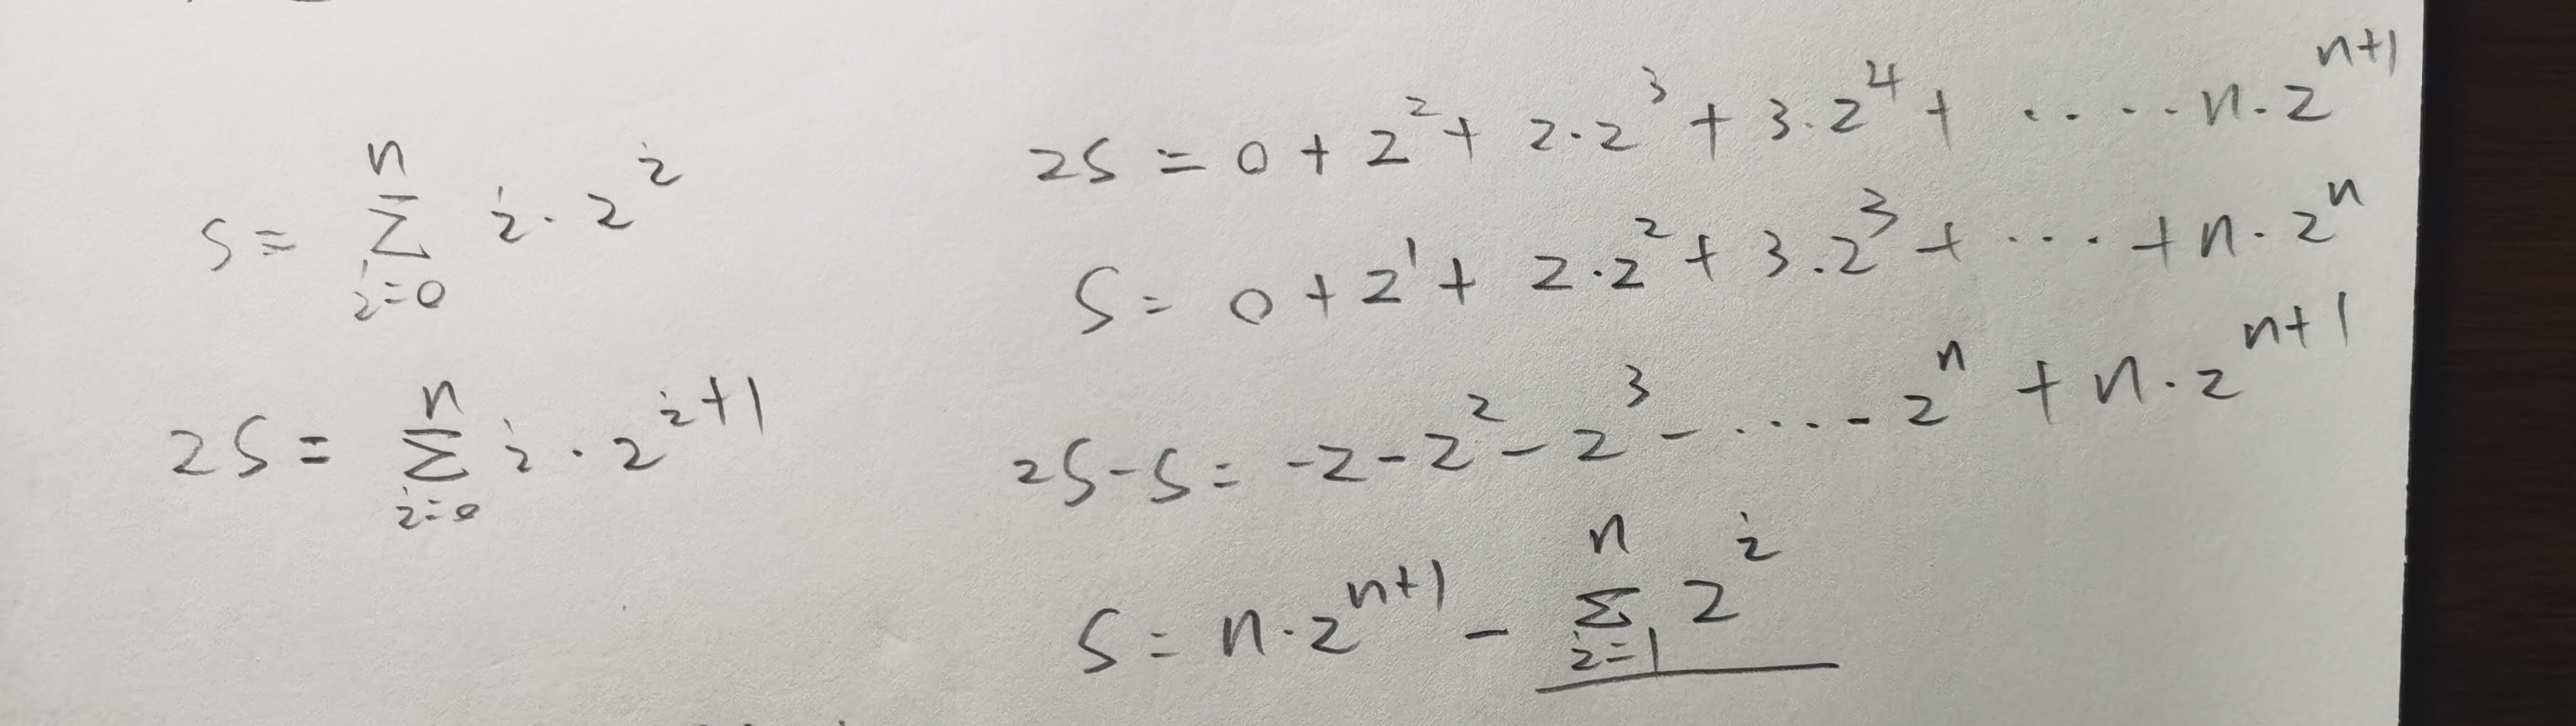 S = \sum_{i=0}^{n} i · 2^{i}
2S = \sum_{i=0}^{n} i · 2^{i+1}
2S = 0 + 2^{2} + 2·2^{3} + 3·2^{4} + ····· n·2^{n+1}
S = 0 + 2^{1} + 2·2^{2} + 3·2^{3} + ··· + n·2^{n}
2S-S = -2 - 2^{2} - 2^{3} - ···· - 2^{n} + n·2^{n+1}
S = n·2^{n+1} - \sum_{i=1}^{n} 2^{i}